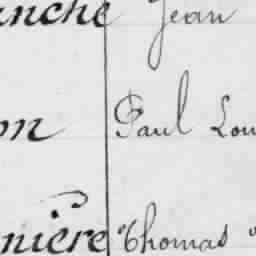 anche Jean
on Paul Lou
nière Thomas